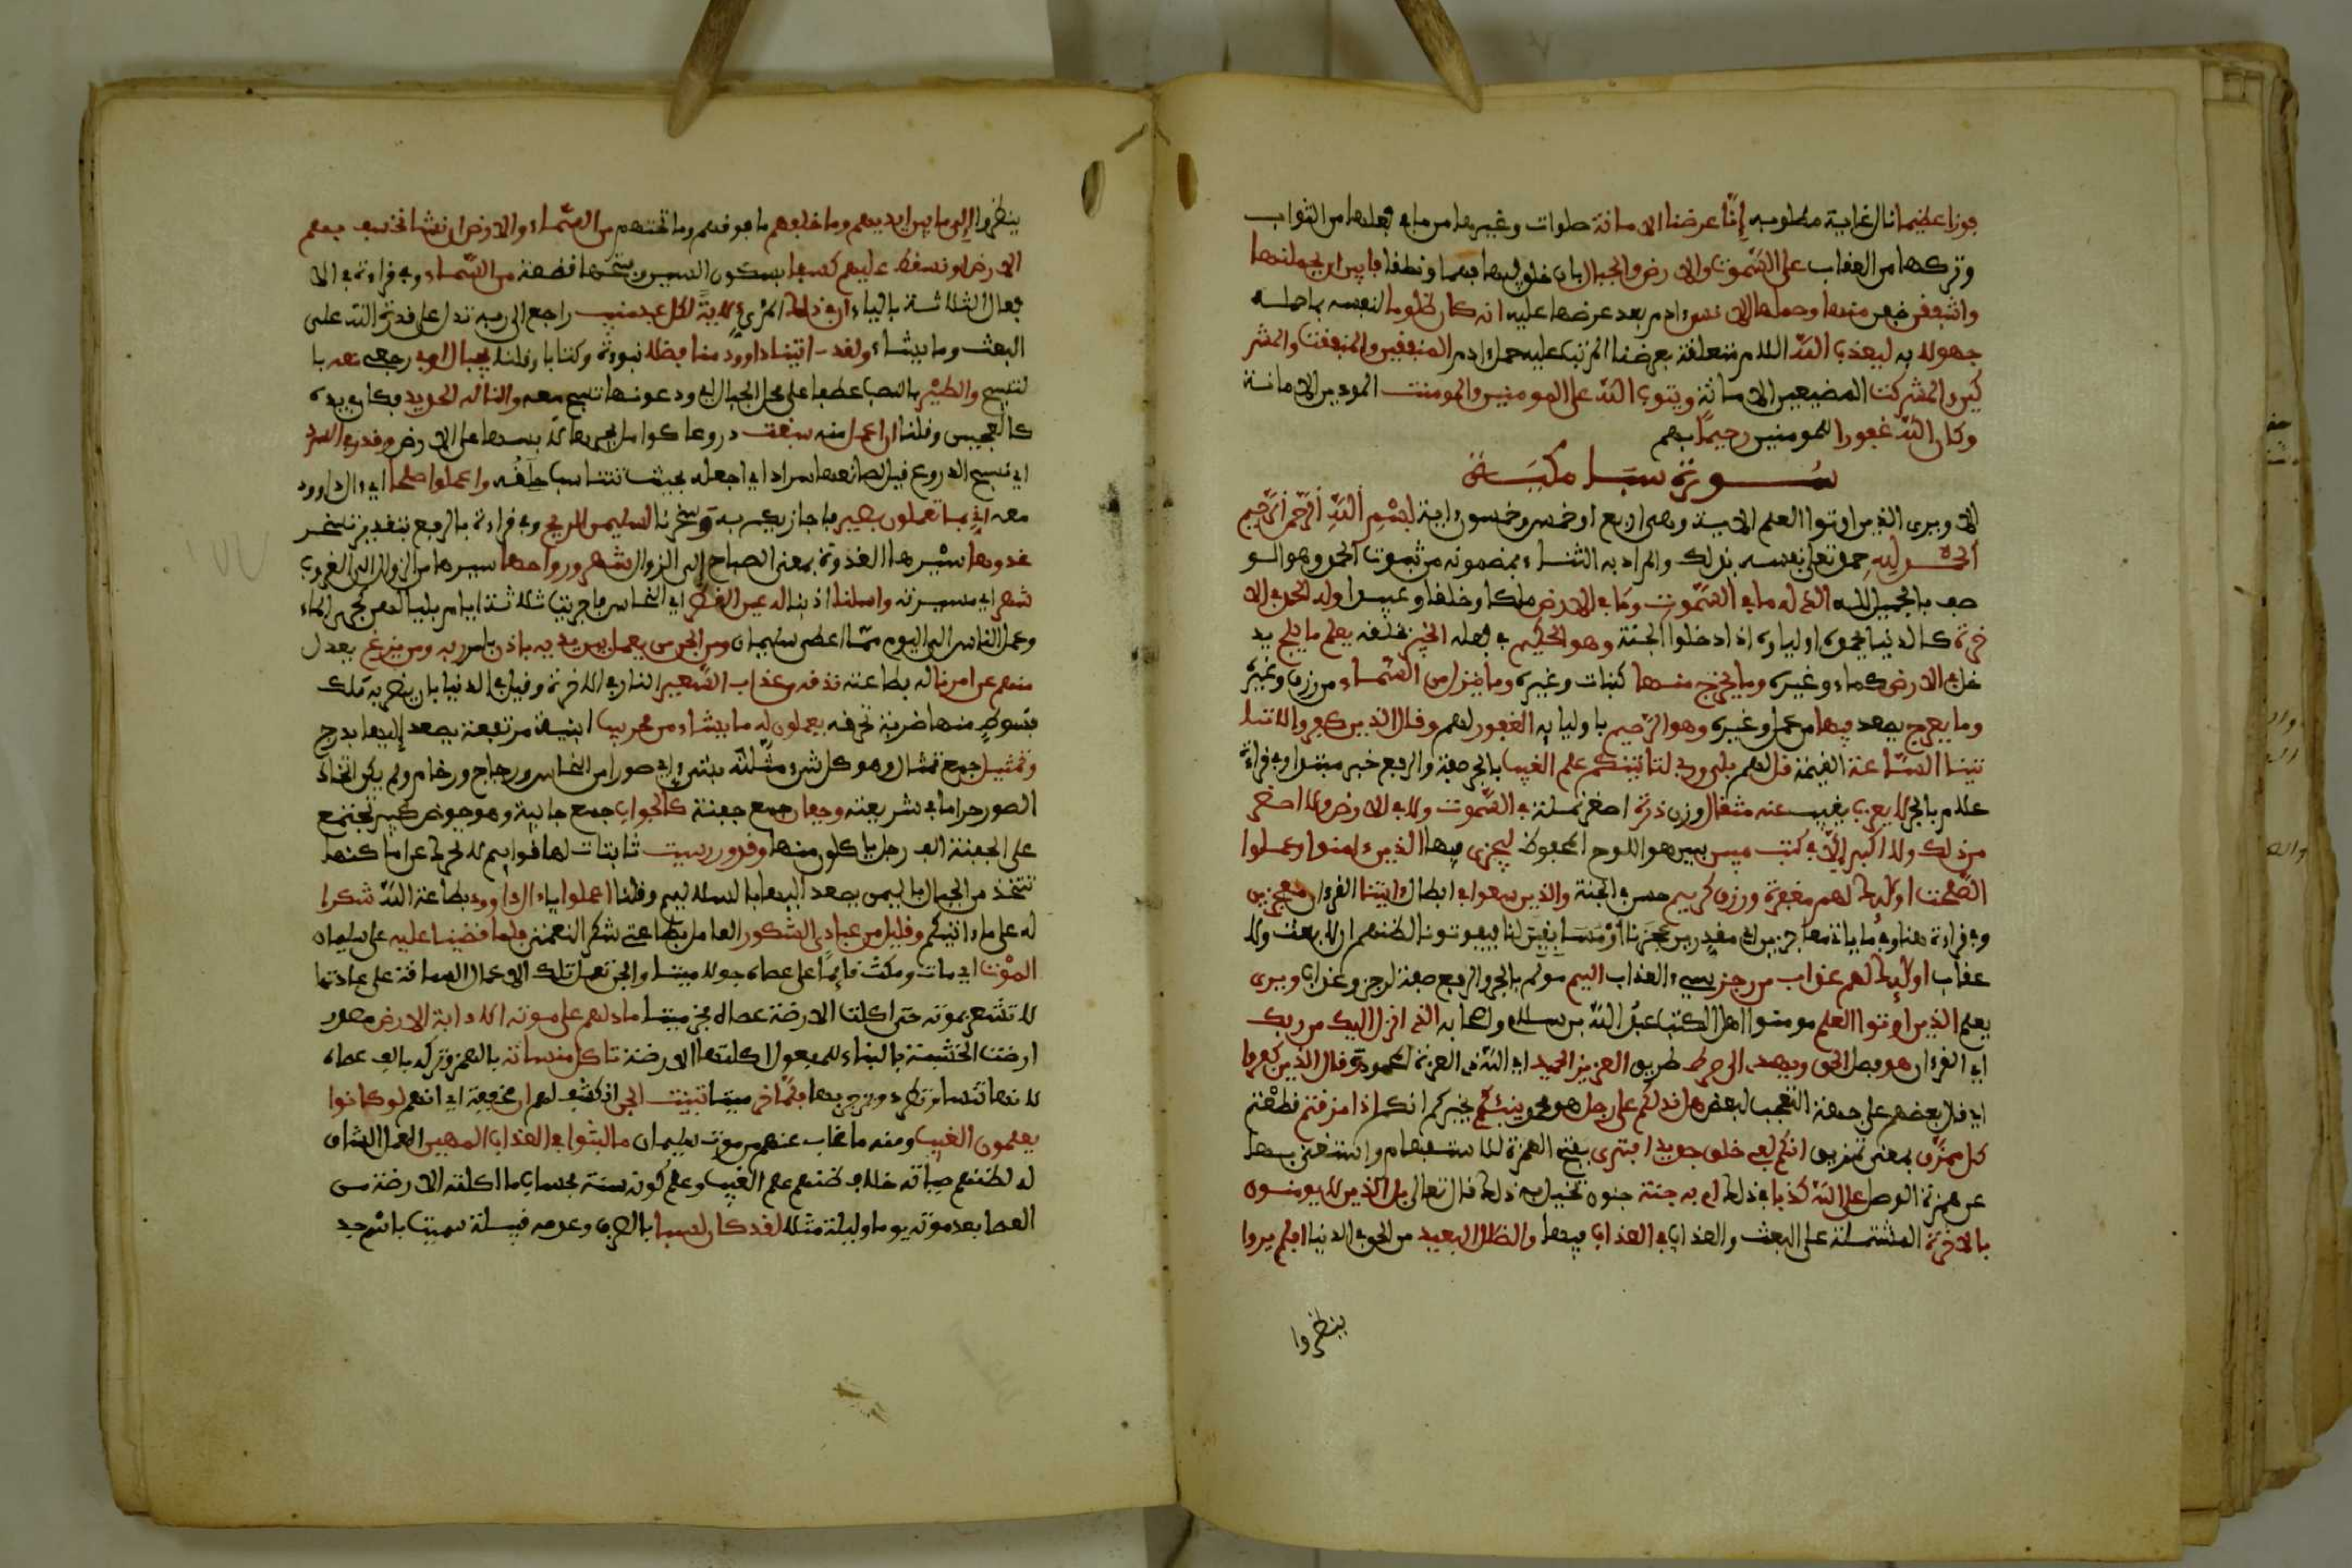 فوزا عظيما نال غاية مطلوبه إنا عرضنا الامانة صلوات وغيرها من ما في فعلها من الثواب
وتركها من العقاب على السموت والارض والجبال بان خلق فيها فهما ونطقا فابين ان يحملنها
واشفقن خفن منها وحملها الانسن ادم بعد عرضها عليه انه كان ظلوما لنفسه بما حمله
جهولا به ليعذب الله اللام متعلقة بعرضنا المترتب عليه حمل ادم المنفقين والمنفقت والمشر
كين والمشركت المضيعين الامانة ويتوب الله على المومنين والمومنت المودين الامانة
وكان الله غفورا للمومنين رحيما بهم
سورة سبا مكية
الا ويرى الذين اوتوا العلم الاية وهي اربع او خمس وخمسون اية بسم الله الرحمن الرحيم
الحمد لله حمد تعلى نفسه بذلك والمراد به الثناء بمضمونه من ثبوت الحمد وهو الو
صف بالجميل لله الذي له ما في السموت وما في الارض ملكا وخلقا وعبيدا وله الحمد في الا
خرة كالدنيا يحمده اولياوه اذا دخلوا الجنة وهو الحكيم في فعله الخبير بخلقه يعلم ما يلج يد
خل في الارض كماء وغيره وما يخرج منها كنبات وغيره وما ينزل من السماء من رزق وغيره
وما يعرج يصعد فيها من عمل وغيره وهو الرحيم باوليايه الغفور لهم وقال الذين كفروا لا تا
تينا الساعة القيمة قل لهم بلى وربي لتاتينكم علم الغيب بالجر صفة والرفع خبر مبتدا وفي قراءة
علام بالجر لا يعزب يغيب عنه مثقال وزن ذرة اصغر نملة في السموت ولا في الارض ولا اصغر
من ذلك ولا اكبر إلا في كتب مبين بين هو اللوح المحفوظ ليجزي فيها الذين ءامنوا وعملوا
الصلحت اوليك لهم مغفرة ورزق كريم حسن في الجنة والذين سعوا في ابطال ءايتنا القرءان معجزين
وفي قراءة هنا وفيما ياتي معاجزين اي مقدرين عجزنا او مسابقين لنا فيفوتونا لظنهم ان لا بعث ولا
عقاب اوليك لهم عذاب من رجز سيء العذاب اليم مولم بالجر والرفع صفة لرجز وعذاب ويرى
يعلم الذين اوتوا العلم مومنوا اهل الكتب عبد الله بن سلام واصحابه الذي انزل اليك من ربك
اي القرءان هو فصل الحق ويهدي الى صرط طريق العزيز الحميد اي الله ذي العزة المحمود وقال الذين كفروا
اي قال بعضهم على جهة التعجب لبعض هل ندلكم على رجل هو محمد ينبئكم يخبركم انكم اذا مزقتم قطعتم
كل ممزق بمعنى تمزيق انكم لفي خلق جديد افترى بفتح الهمزة للاستفهام واستغني بها
عن همزة الوصل على الله كذبا في ذلك ام به جنة جنون تخيل به ذلك قال تعالى بل الذين لا يومنون
بالاخرة المشتملة على البعث والعذاب في العذاب فيها والضلل البعيد من الحق في الدنيا افلم يروا
ينظروا
ينظروا إلى ما بين ايديهم وما خلفهم ما فوقهم وما تحتهم من السماء والارض ان نشا نخسف بهم
الارض او نسقط عليهم كسفا بسكون السين وفتحها قطعة من السماء وفي قراءة في الا
فعال الثلاثة بالياء ان في ذلك المريي لاية لكل عبد منيب راجع الى ربه تدل على قدرة الله على
البعث وما يشاء ولقد اتينا داوود منا فضلا نبوة وكتابا وقلنا يجبال اوبي رجعي معه با
لتسبيح والطير بالنصب عطفا على محل الجبال اي ودعوناها تسبح معه والنا له الحديد فكان في يده
كالعجين وقلنا ان اعمل منه سبغت دروعا كوامل يجرها لابسها على الارض وقدر في السرد
اي نسج الدروع قيل لصانعها سراد اي اجعله بحيث تتناسب حلقه واعملوا صلحا اي ءال داوود
معه اني بما تعملون بصير فاجازيكم به وسخرنا لسليمن الريح وفي قراءة بالرفع بتقدير تسخر
غدوها سيرها الغدوة بمعنى الصباح إلى الزوال شهر ورواحها سيرها من الزوال الى الغروب
شهر اي مسيرته واسلنا اذبنا له عين القطر اي النحاس فاجريت ثلاثة ايام بلياليهن كجري الماء
وعمل الناس الى اليوم مما اعطي سليمان ومن الجن من يعمل بين يديه باذن بامر ربه ومن يزغ يعدل
منهم عن امرنا له بطاعته نذقه من عذاب السعير النار في الاخرة وقيل في الدنيا بان يضربه ملك
بسوط منها ضربة تحرقه يعملون له ما يشاء من محريب ابنية مرتفعة يصعد إليها بدرج
وتمثيل جمع تمثال وهو كل شيء مثلته بشيء اي صورا من النحاس وزجاج ورخام ولم يكن اتخاذ
الصور حراما في شريعته وجفان جمع جفنة كالجواب جمع جابية وهو حوض كبير يجتمع
على الجفنة الف رجل ياكلون منها وقدور رسيت ثابتات لها قوايم لا تحرك عن اماكنها
تتخذ من الجبال باليمن يصعد اليها بالسلاليم وقلنا اعملوا ياء ال داوود بطاعة الله شكرا
له على ما ءاتيكم وقليل من عبادي الشكور العامل بطاعتي شكر النعمتي فلما قضينا عليه على سليمان
الموت اي مات ومكث قايما على عصاه حولا ميتا والجن تعمل تلك الاعمال الشاقة على عادتها
لا تشعر بموته حتى اكلت الارضة عصاه فخر ميتا ما دلهم على موته الا دابة الارض مصدر
ارضت الخشبة بالبناء للمفعول اكلتها الارضة تاكل منساته بالهمز وتركه بالف عصاه
لانها تنسا تطرد ويزجر بها فلما خر ميتا تبينت الجن انكشف لهم ان مخففة اي انهم لو كانوا
يعلمون الغيب ومنه ما غاب عنهم من موت سليمان ما لبثوا في العذاب المهين العمل الشاق
له لظنهم حياته خلاف ظنهم علم الغيب وعلم كونه سنة بحساب ما اكلته الارضة من
العصا بعد موته يوما وليلة مثلا لقد كان لسبا بالصرف وعدمه قبيلة سميت باسم جد